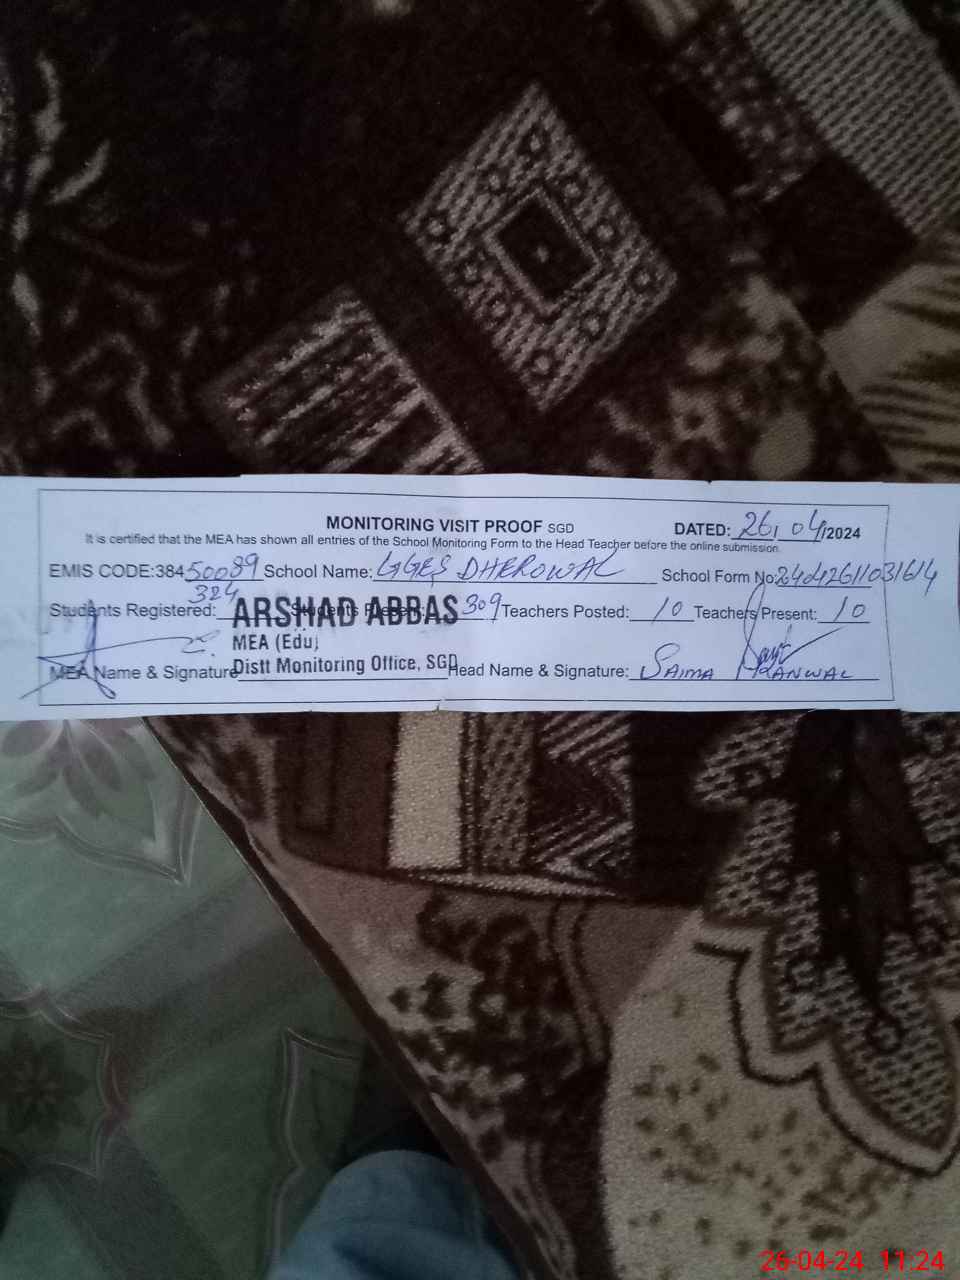 MONITORING VISIT PROOF SGD DATED: 26/04/2024
It is certified that the MEA has shown all entries of the School Monitoring Form to the Head Teacher before the online submission.
EMIS CODE:38450089 School Name: GGES DHEROWAL School Form No:
Students Registered: 324 Students Present: 309 Teachers Posted: 10 Teachers Present: 10
ARSHAD ABBAS
MEA (Edu)
Distt Monitoring Office, SGD
MEA Name & Signature Head Name & Signature: SAIMA KANWAL
26-04-24 11:24